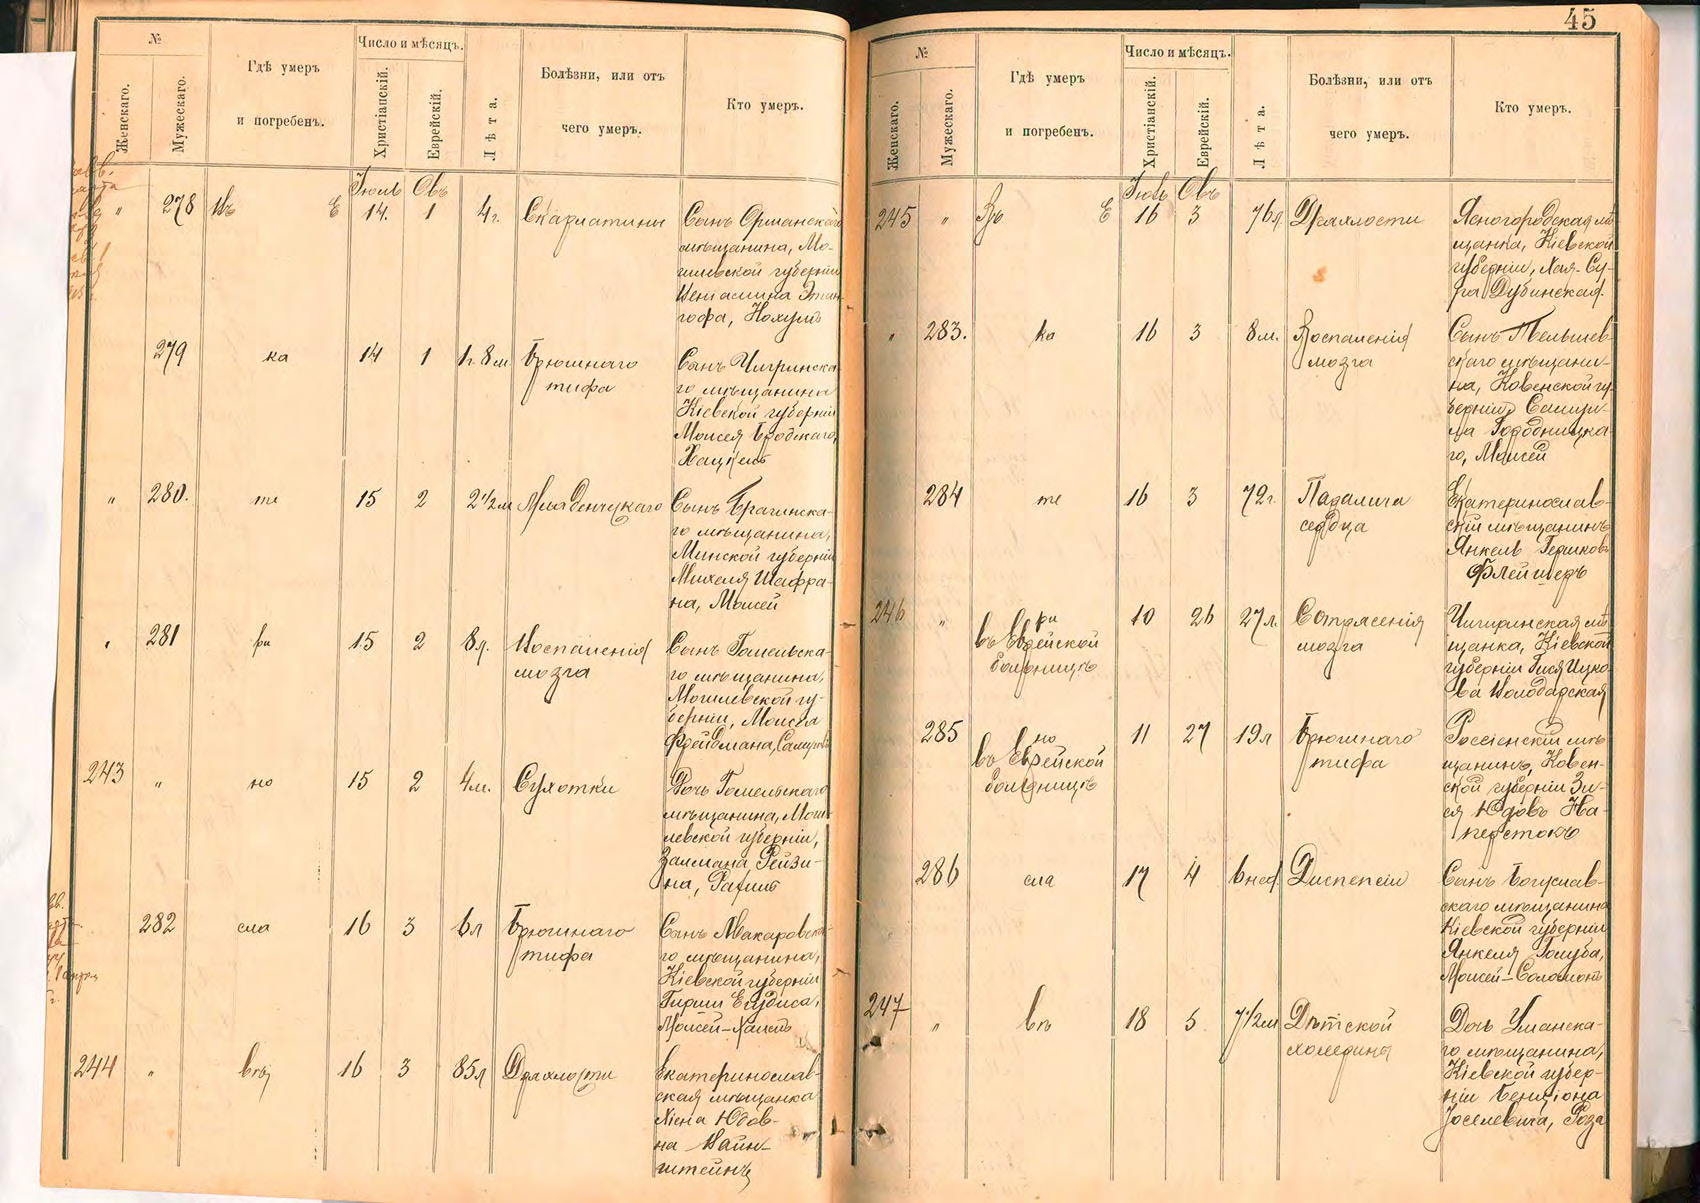 №
Женскаго.
Мужескаго.
Гдѣ умеръ
и погребенъ.
Число и мѣсяцъ.
Христіанскій.
Еврейскій.
Лѣта.
Болѣзни, или отъ
чего умеръ.
Кто умеръ.
Іюль Овъ
" 278 Въ Е 14. 1 4г. Скарлатины
Сынъ Оршанскаго
мѣщанина, Мо-
гилевской губерніи
Веніамина
гофа, Нохумъ
279 ка 14 1 1г. 8м Брюшнаго
тифа
Сынъ Чигринска-
го мѣщанина
Кіевской губерніи
Моисея Бродскаго,
Хацкель
" 280. те 15 2 2 1/2 м Младенческаго
Сынъ Брагинска-
го мѣщанина,
Минской губерніи
Михеля Шафра-
на, Моисей
" 281 ри 15 2 8л. Воспаленія
мозга
Сынъ Гомельска-
го мѣщанина,
Могилевской гу-
берніи, Моисея
Фрейдмана, Самуилъ
243 " но 15 2 4м. Сухотки
Дочь Гомельскаго
мѣщанина, Моги-
левской губерніи,
Залмана Рейзи-
на, Рахиль
282 сла 16 3 6л Брюшнаго
тифа
Сынъ Макаровска-
го мѣщанина,
Кіевской губерніи
Гирши
Моисей-Хаимъ
244 " въ 16 3 85л Дряхлости
Екатеринослав-
ская мѣщанка
Юдов-
на Вайн-
штейнъ
45
№
Женскаго.
Мужескаго.
Гдѣ умеръ
и погребенъ.
Число и мѣсяцъ.
Христіанскій.
Еврейскій.
Лѣта.
Болѣзни, или отъ
чего умеръ.
Кто умеръ.
Іюль Овъ
245 " Въ Е 16 3 76л. Дряхлости
Ясногородская мѣ-
щанка, Кіевской
губерніи, Хая-Су-
ра Дубинская.
" 283. ка 16 3 8м. Воспаленія
мозга
Сынъ Тельшев-
скаго мѣщани-
на, Ковенской гу-
берніи, Самуи-
ла Городницка-
го, Моисей
284 те 16 3 72г. Паралича
сердца
Екатеринослав-
скій мѣщанинъ
Янкель Гершковъ
Флейшеръ
246 " ри
въ Еврейской
больницѣ
10 26 27л. Сотрясенія
мозга
Чигиринская мѣ-
щанка, Кіевской
губерніи Гися Ицко-
ва Володарская
285 но
въ Еврейской
больницѣ
11 27 19л Брюшнаго
тифа
Россіенскій мѣ-
щанинъ, Ковен-
ской губерніи Зи-
ся Юдовъ На-
перстокъ
286 сла 17 4 6 нед. Диспепсіи
Сынъ Богуслав-
скаго мѣщанина
Кіевской губерніи
Янкеля Голуба,
Моисей-Соломонъ
247 " въ 18 5 7 1/2 м Дѣтской
холерина
Дочь Уманска-
го мѣщанина,
Кіевской губер-
ніи Бенціона
Іоселевича, Роза